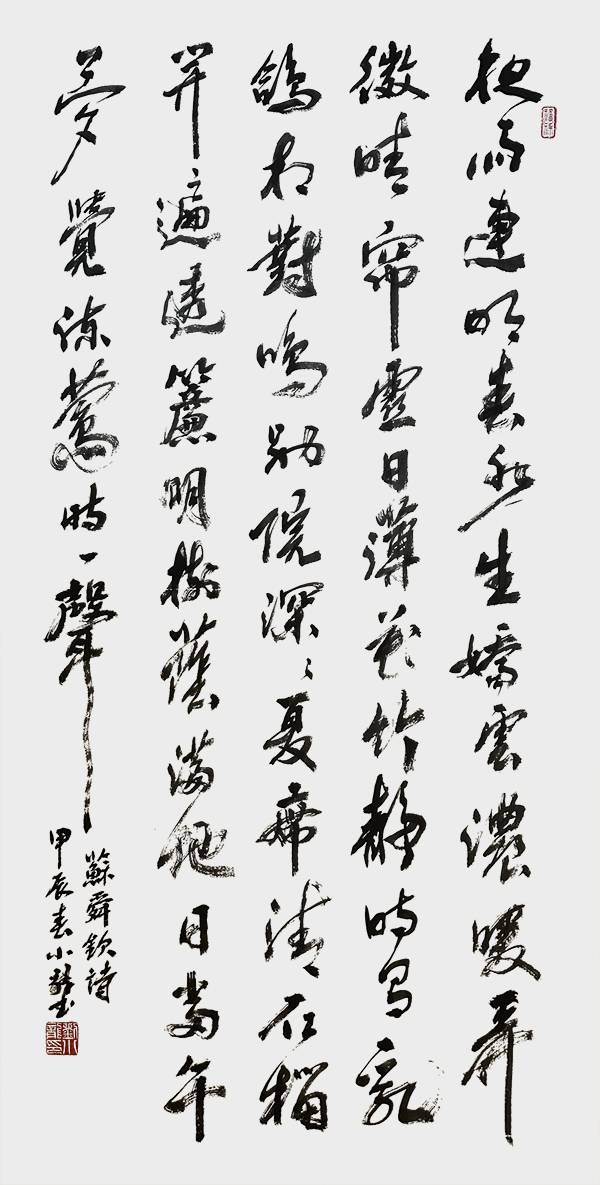 夜雨連明春水生嬌雲濃暖弄
微晴帘虛日薄花竹靜時有乳
鳩相對鳴別院深〻夏席清石榴
開遍透簾明樹蔭滿地日當午
夢覺流鶯時一聲
蘇舜欽詩
甲辰春小龍書